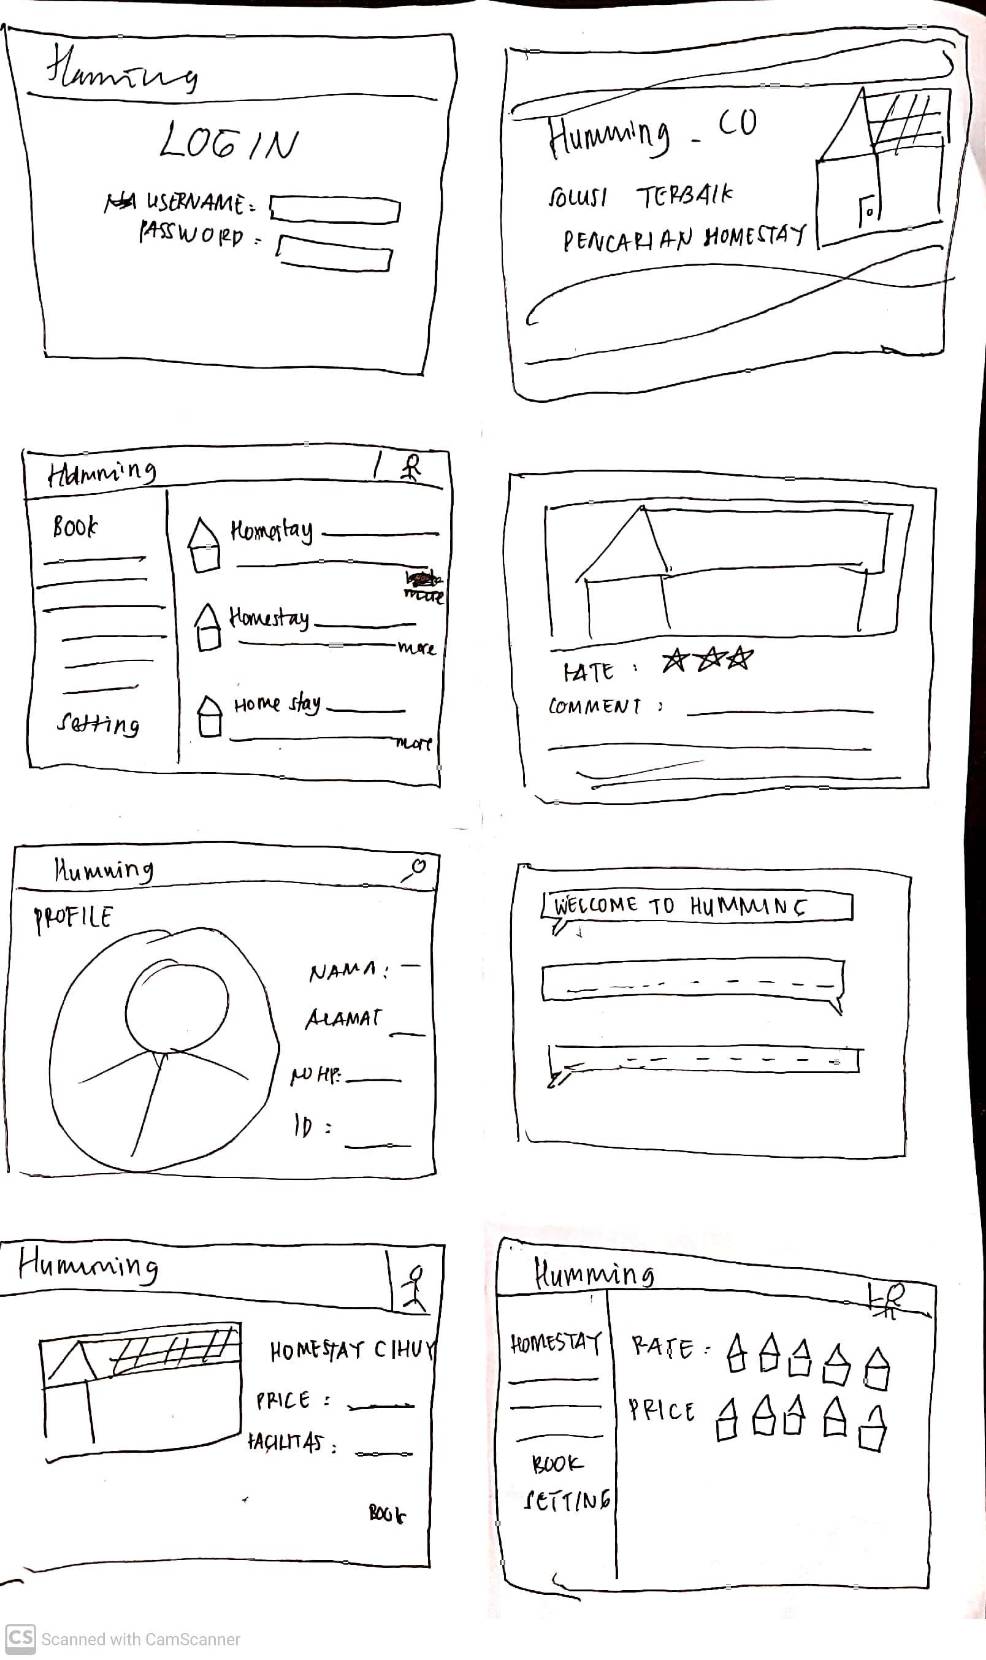 Humming
LOGIN
USERNAME:
PASSWORD:
Humming - CO
SOLUSI TERBAIK
PENCARIAN HOMESTAY
Humming
Book
Setting
Homestay
more
Homestay
more
Home stay
more
RATE :
COMMENT :
Humming
PROFILE
NAMA:
ALAMAT
NO HP:
ID :
WELCOME TO HUMMING
Humming
HOMESTAY CIHUY
PRICE :
FACILITAS :
BOOK
Humming
HOMESTAY
BOOK
SETTING
RATE :
PRICE
CS Scanned with CamScanner